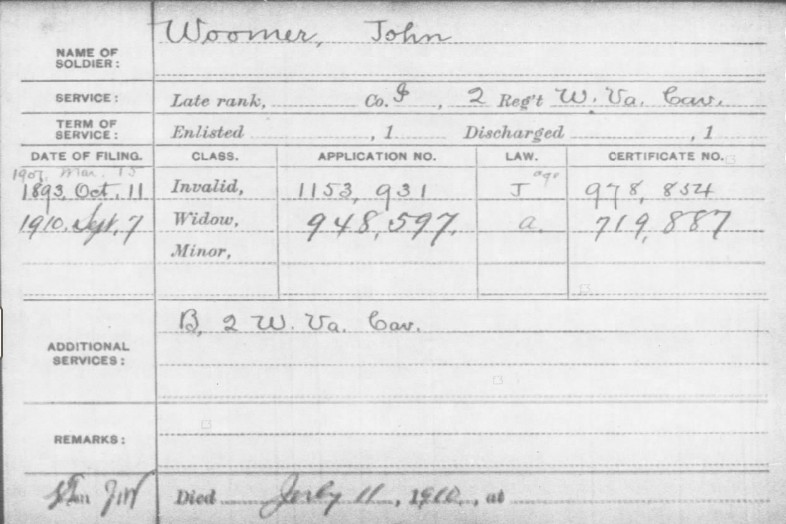 Woomer, John
NAME OF SOLDIER:
SERVICE: Late rank, Co. , 2 Reg't W. Va. Cav.
TERM OF SERVICE: Enlisted , 1 Discharged , 1
DATE OF FILING. CLASS. APPLICATION NO. LAW. CERTIFICATE NO.
1907, Mar. 15 age
1893, Oct. 11 Invalid, 1153,931 J 978,854
1910, Sept. 7 Widow, 948,597. a. 719,887
Minor,
ADDITIONAL SERVICES: B, 2 W. Va. Cav.
REMARKS:
Died July 11, 1910, at